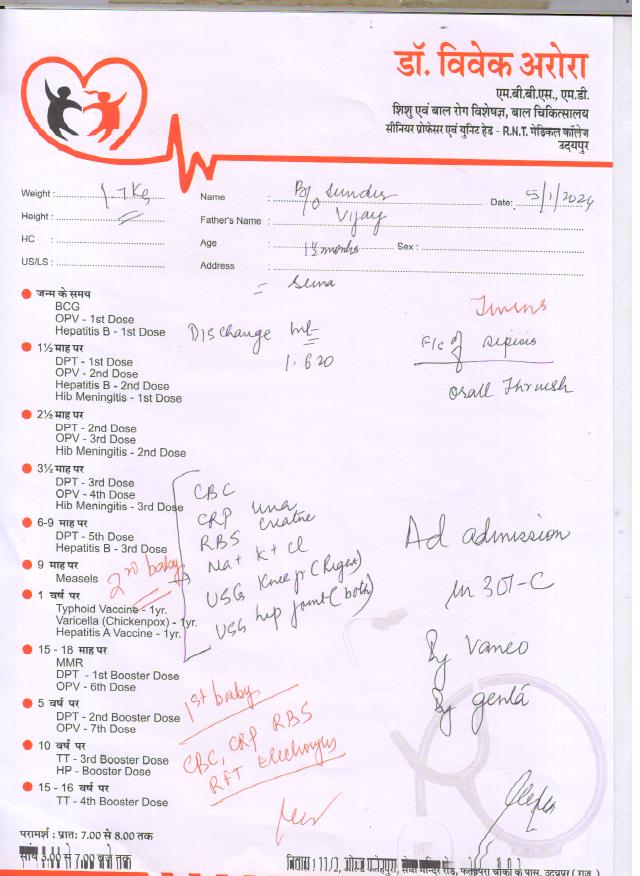 डॉ. विवेक अरोरा
एम.बी.बी.एस., एम.डी.
शिशु एवं बाल रोग विशेषज्ञ, बाल चिकित्सालय
सीनियर प्रोफेसर एवं युनिट हेड - R.N.T. मेडिकल कॉलेज
उदयपुर
Weight : 1.7 Kg
Name : B/o Sunder
Date: 5/1/2024
Height :
Father's Name : Vijay
HC :
Age : 1½ months Sex :
US/LS :
Address :
Twins
Discharge wt
1.620
F/c of sepsis
orall Thrush
जन्म के समय
BCG
OPV - 1st Dose
Hepatitis B - 1st Dose
1½ माह पर
DPT - 1st Dose
OPV - 2nd Dose
Hepatitis B - 2nd Dose
Hib Meningitis - 1st Dose
2½ माह पर
DPT - 2nd Dose
OPV - 3rd Dose
Hib Meningitis - 2nd Dose
3½ माह पर
DPT - 3rd Dose
OPV - 4th Dose
Hib Meningitis - 3rd Dose
6-9 माह पर
DPT - 5th Dose
Hepatitis B - 3rd Dose
9 माह पर
Measels
1 वर्ष पर
Typhoid Vaccine - 1yr.
Varicella (Chickenpox) - 1yr.
Hepatitis A Vaccine - 1yr.
15 - 18 माह पर
MMR
DPT - 1st Booster Dose
OPV - 6th Dose
5 वर्ष पर
DPT - 2nd Booster Dose
OPV - 7th Dose
10 वर्ष पर
TT - 3rd Booster Dose
HP - Booster Dose
15 - 16 वर्ष पर
TT - 4th Booster Dose
2nd baby
CBC
CRP urea
RBS creatine
Na+ K+ Cl
USG Knee jt (Right)
USG hip joint (both)
Ad admission
in 301-C
By Vanco
By genta
1st baby
CBC, CRP RBS
RFT Electrolytes
परामर्श : प्रातः 7.00 से 8.00 तक
सांय 5.00 से 7.00 बजे तक
निवास : 11/2, ओल्ड फतेहपुरा, सेवा मन्दिर रोड, फतेहपुरा चौकी के पास, उदयपुर ( राज. )